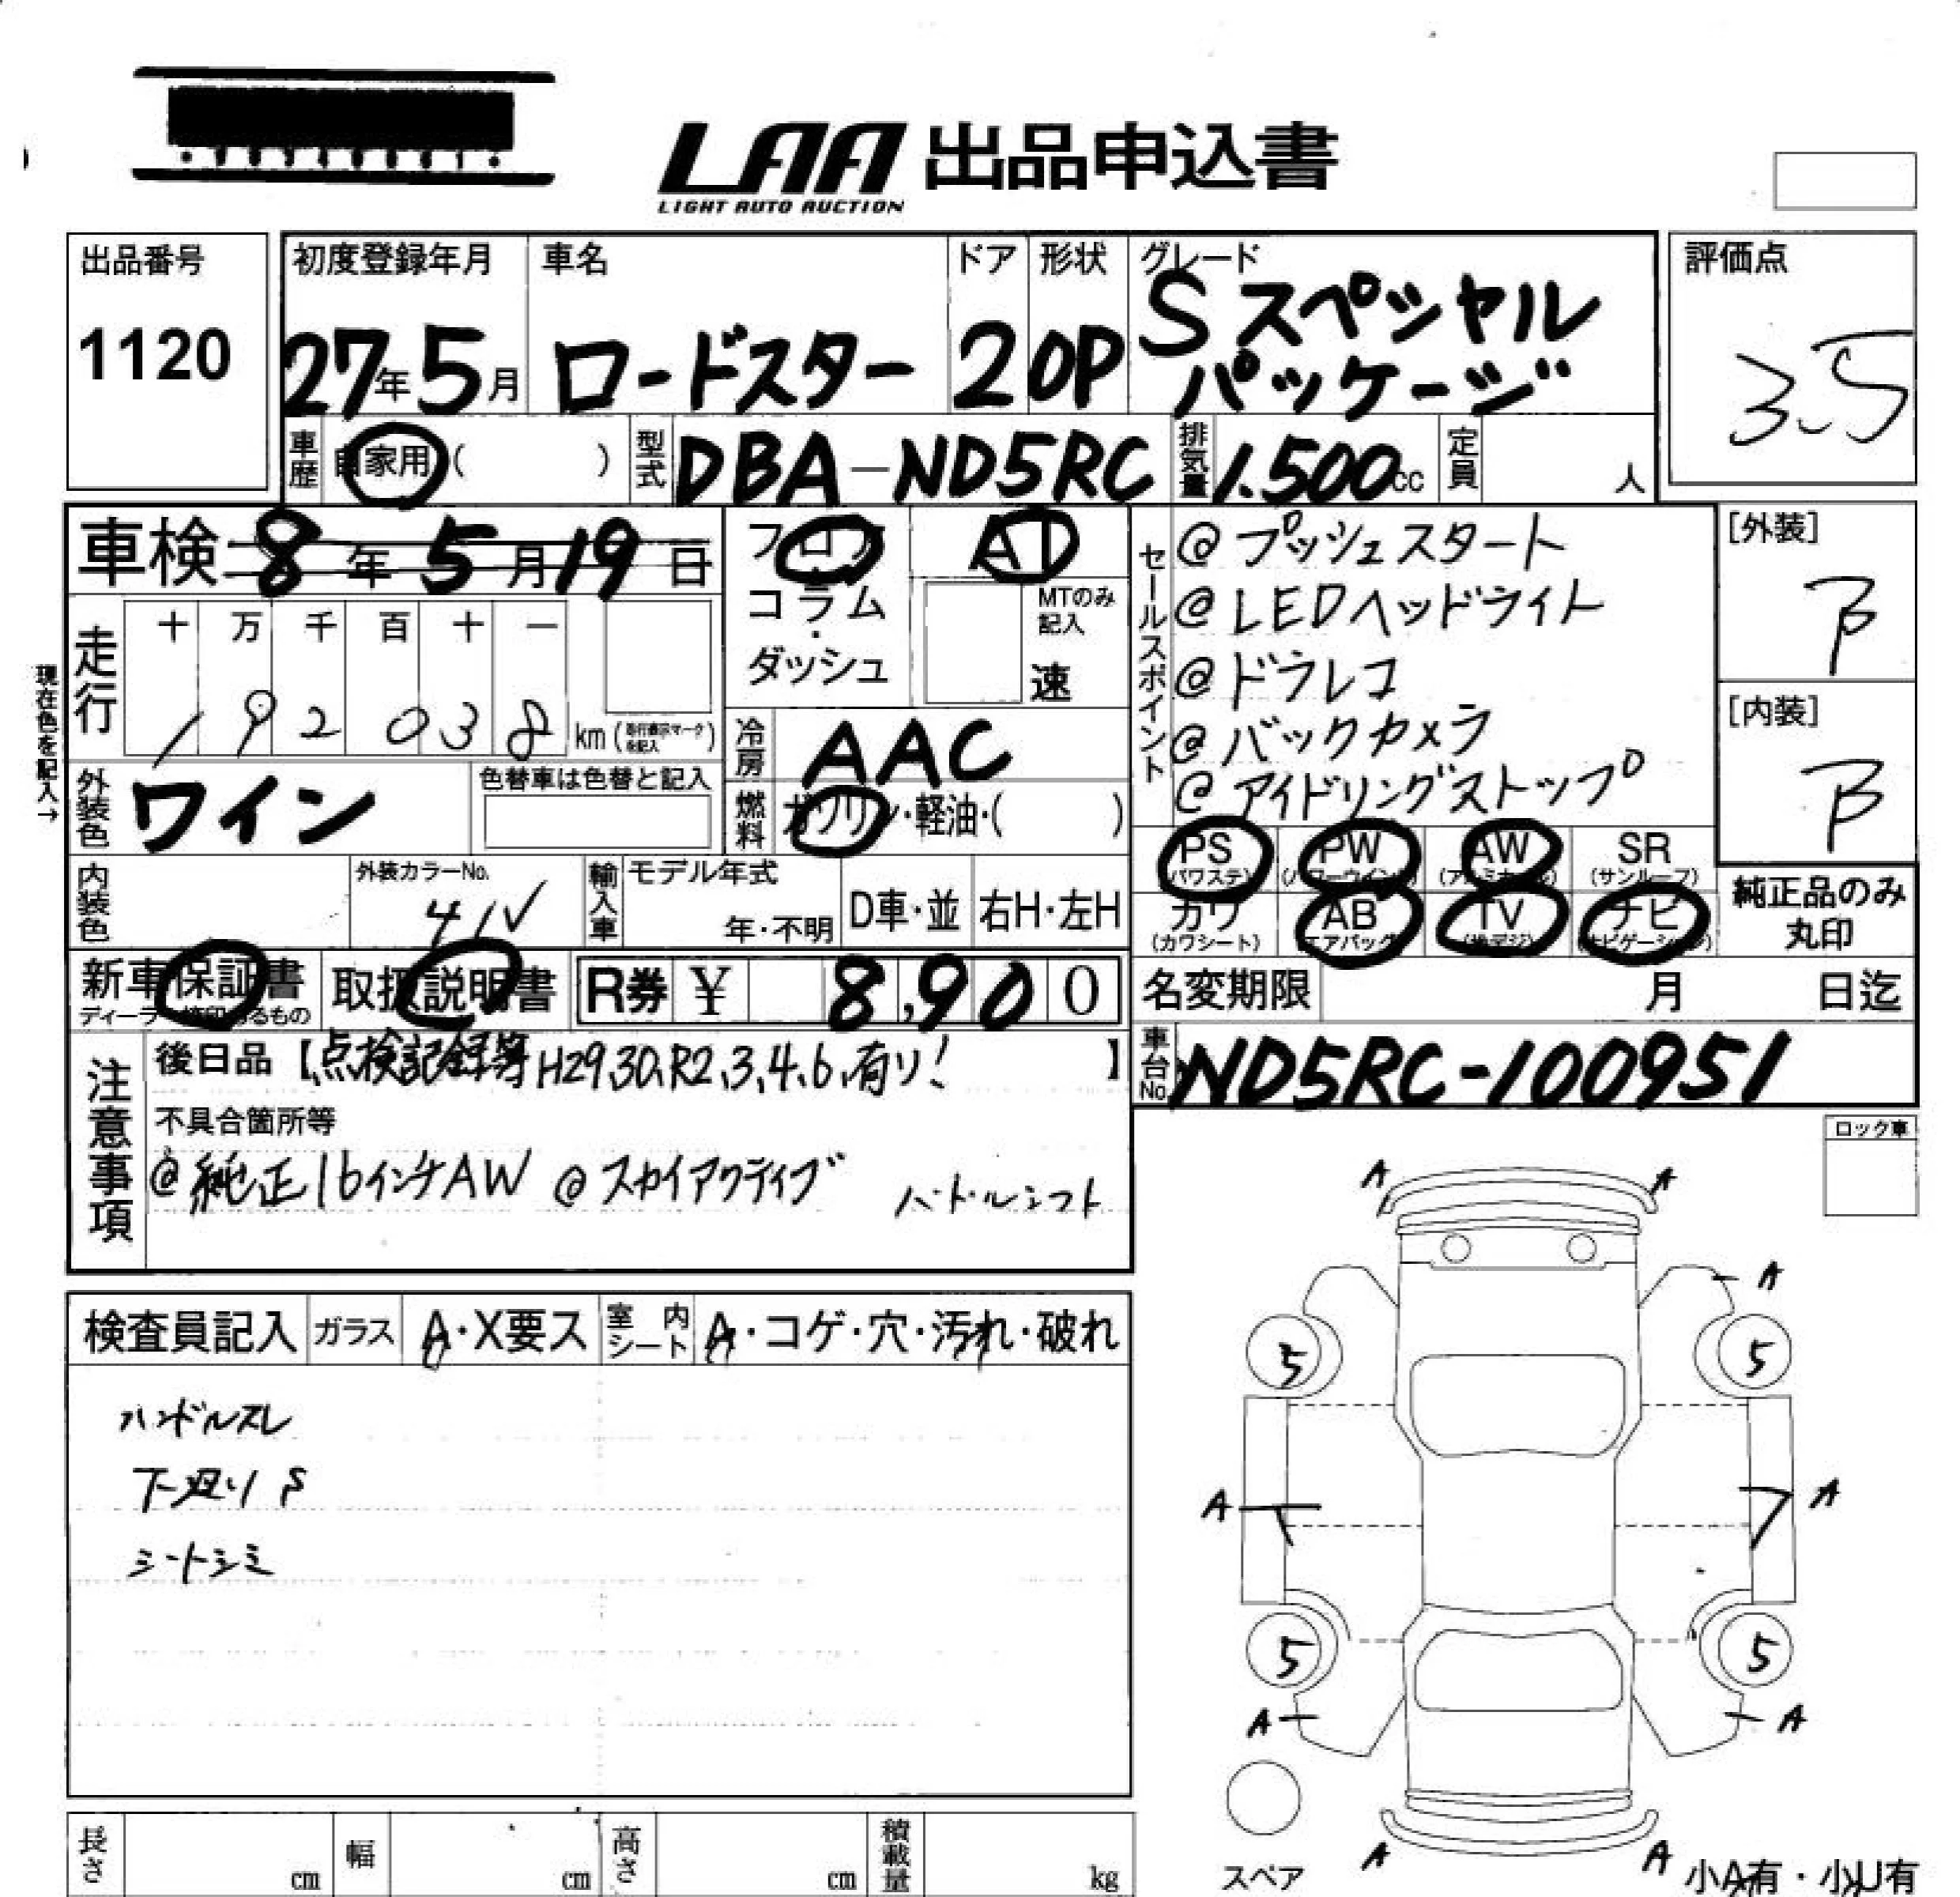 LAA 出品申込書
LIGHT AUTO AUCTION
出品番号
1120
初度登録年月
27年5月
車名
ロードスター
ドア
2
形状
OP
グレード
Sスペシャル
パッケージ
評価点
3.5
車歴
自家用( )
型式
DBA-ND5RC
排気量
1.500cc
定員
人
車検 8年5月19日
走行
十 万 千 百 十 一
1 9 2 0 3 8 km
現在色を記入→
フロア
コラム
・
ダッシュ
AT
MTのみ
記入
速
冷房
AAC
燃料
ガソリン・軽油・( )
外装色
ワイン
色替車は色替と記入
内装色
外装カラーNo.
41V
輸入車
モデル年式
年・不明
D車・並
右H・左H
セールスポイント
@プッシュスタート
@LEDヘッドライト
@ドラレコ
@バックカメラ
@アイドリングストップ
[外装]
B
[内装]
B
PS
(パワステ)
PW
(パワーウインド)
AW
(アルミホイール)
SR
(サンルーフ)
カワ
(カワシート)
AB
(エアバッグ)
TV
(地デジ)
ナビ
(ナビゲーション)
純正品のみ
丸印
新車保証書
取扱説明書
R券 ¥ 8,900
名変期限 月 日迄
車台No.
ND5RC-100951
注意事項
後日品【点検記録簿H29,30,R2,3,4,6,有り!】
不具合箇所等
@純正16インチAW @スカイアクティブ パドルシフト
ロック車
検査員記入
ガラス
A・X要ス
室内シート
A・コゲ・穴・汚れ・破れ
ハンドルスレ
下廻りS
シートシミ
A A
A
5 5
A A
5 5
A A
A A
スペア
小A有・小U有
長さ cm
幅 cm
高さ cm
積載量 kg